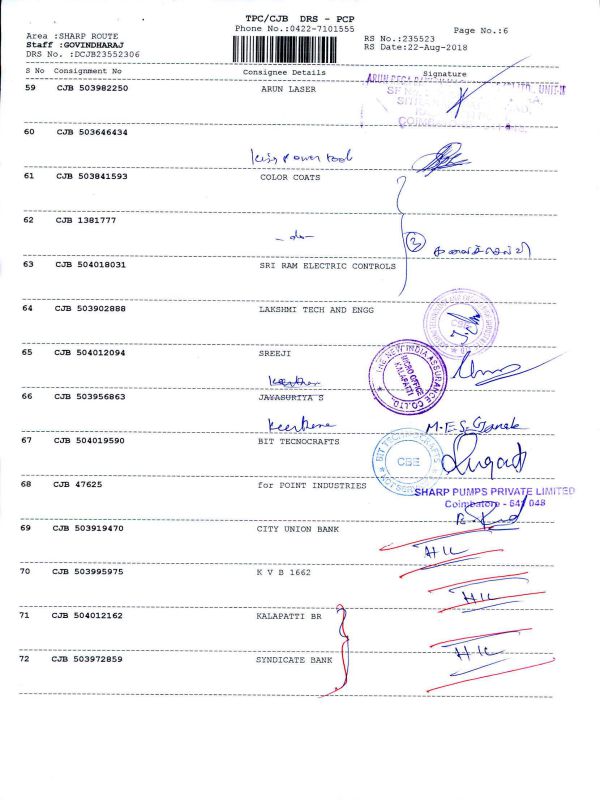 TPC/CJB DRS - PCP
Area :SHARP ROUTE Phone No.:0422-7101555 Page No.:6
Staff :GOVINDHARAJ RS No.:235523
DRS No. :DCJB23552306 RS Date:22-Aug-2018
S No Consignment No Consignee Details Signature
59 CJB 503982250 ARUN LASER
60 CJB 503646434
power tool
61 CJB 503841593 COLOR COATS
62 CJB 1381777
- do -
3
63 CJB 504018031 SRI RAM ELECTRIC CONTROLS
64 CJB 503902888 LAKSHMI TECH AND ENGG
CBE
65 CJB 504012094 SREEJI
THE NEW INDIA ASSURANCE CO.LTD.
MICRO OFFICE
KALAPATTI
66 CJB 503956863 JAYASURIYA S
Keerthana
67 CJB 504019590 BIT TECNOCRAFTS
CBE
68 CJB 47625 for POINT INDUSTRIES
SHARP PUMPS PRIVATE LIMITED
Coimbatore - 641 048
69 CJB 503919470 CITY UNION BANK
70 CJB 503995975 K V B 1662
71 CJB 504012162 KALAPATTI BR
72 CJB 503972859 SYNDICATE BANK